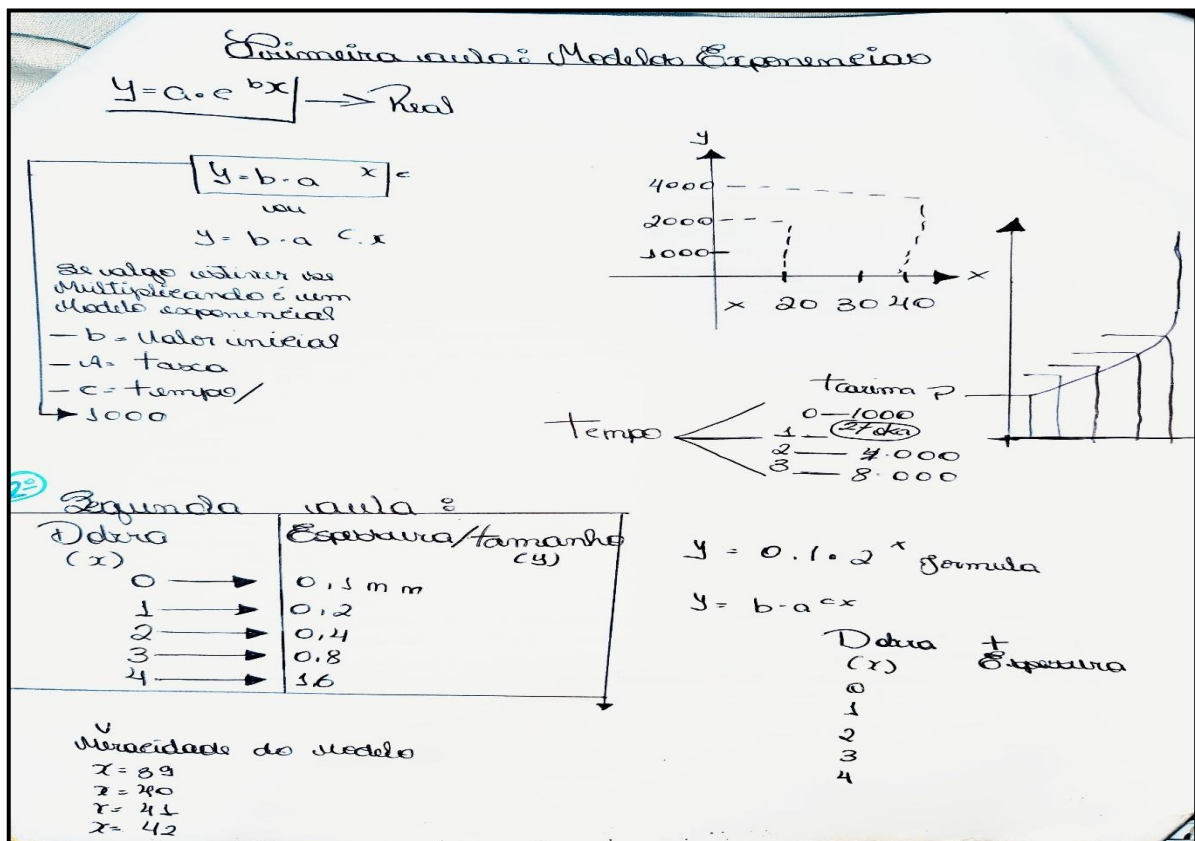 Primeira aula: Modelos Exponencias
y = a . e bx → Real
y = b - a x c
ou
y = b - a c.x
Se algo estiver se
Multiplicando é um
Modelo exponencial
- b = Valor inicial
- A = taxa
- c = tempo/
1000
y
4000
2000
1000
x
x 20 30 40
P
0 — 1000
tempo
1 —
2 — 4.000
3 — 8.000
2º
Segunda aula:
Dobra Espessura/tamanho
(x) (y)
0 → 0,1 mm
1 → 0,2
2 → 0,4
3 → 0,8
4 → 16
y = 0.1 . 2 x formula
y = b - a cx
Dobra + Espessura
(x)
0
1
2
3
4
Veracidade do Modelo
x = 39
x = 40
x = 41
x = 42